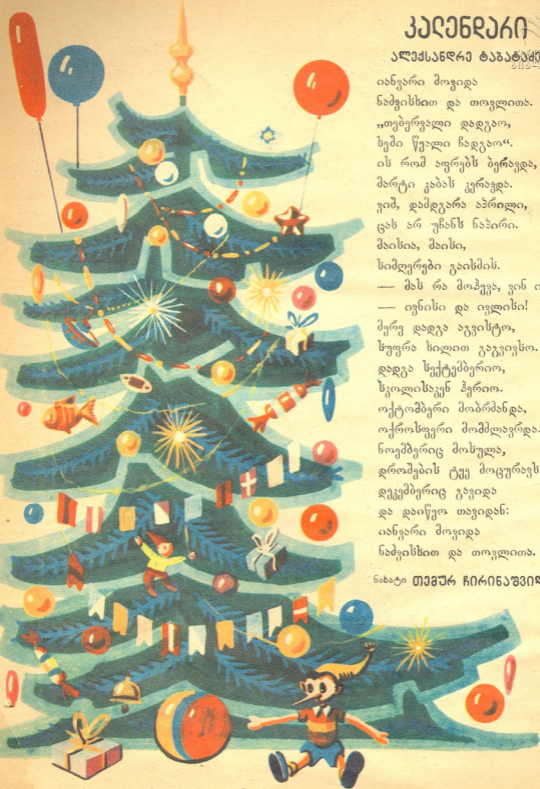 კალენდარი
ალექსანდრე
იანვარი მოვიდა
ნამქისით და თოვლითა.
„თებერვალი დადგაო,
ხეში წყალი ჩადგაო“.
ის რომ აფრებს ბერავდა,
მარტი კაბას კერავდა.
ვიშ, დამდგარა აპრილი,
ცას არ უჩანს ნაპირი.
მაისია, მაისი,
სიმღერები გაისმის.
— მას რა მოჰყვა, ვინ
— ივნისი და ივლისი!
მერე დადგა აგვისტო,
სუფრა ხილით გაგვივსო.
დადგა სექტემბერიო,
სკოლისაკენ ჰერიო.
ოქტომბერი მობრძანდა,
ოქროსფერი მომძლავრდა.
ნოემბერიც მოსულა,
დროშების ტყე
დეკემბერიც გავიდა
და დაიწყო თავიდან:
იანვარი მოვიდა
ნამქისით და თოვლითა.
ნახატი თემურ